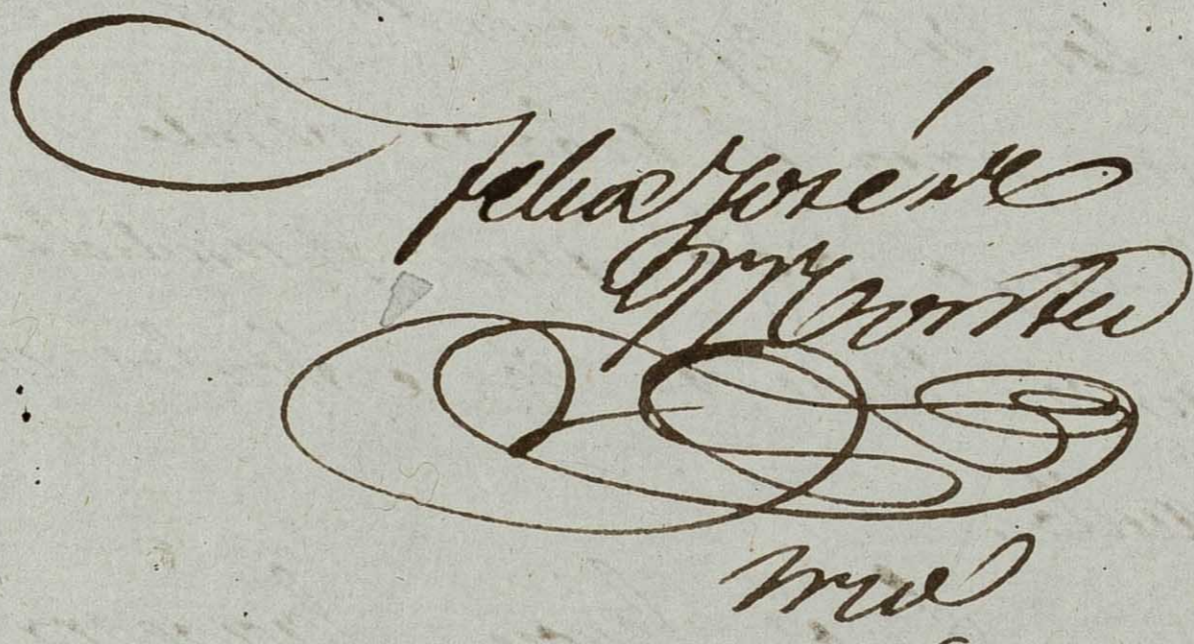 Felix José de
Montes
Srio